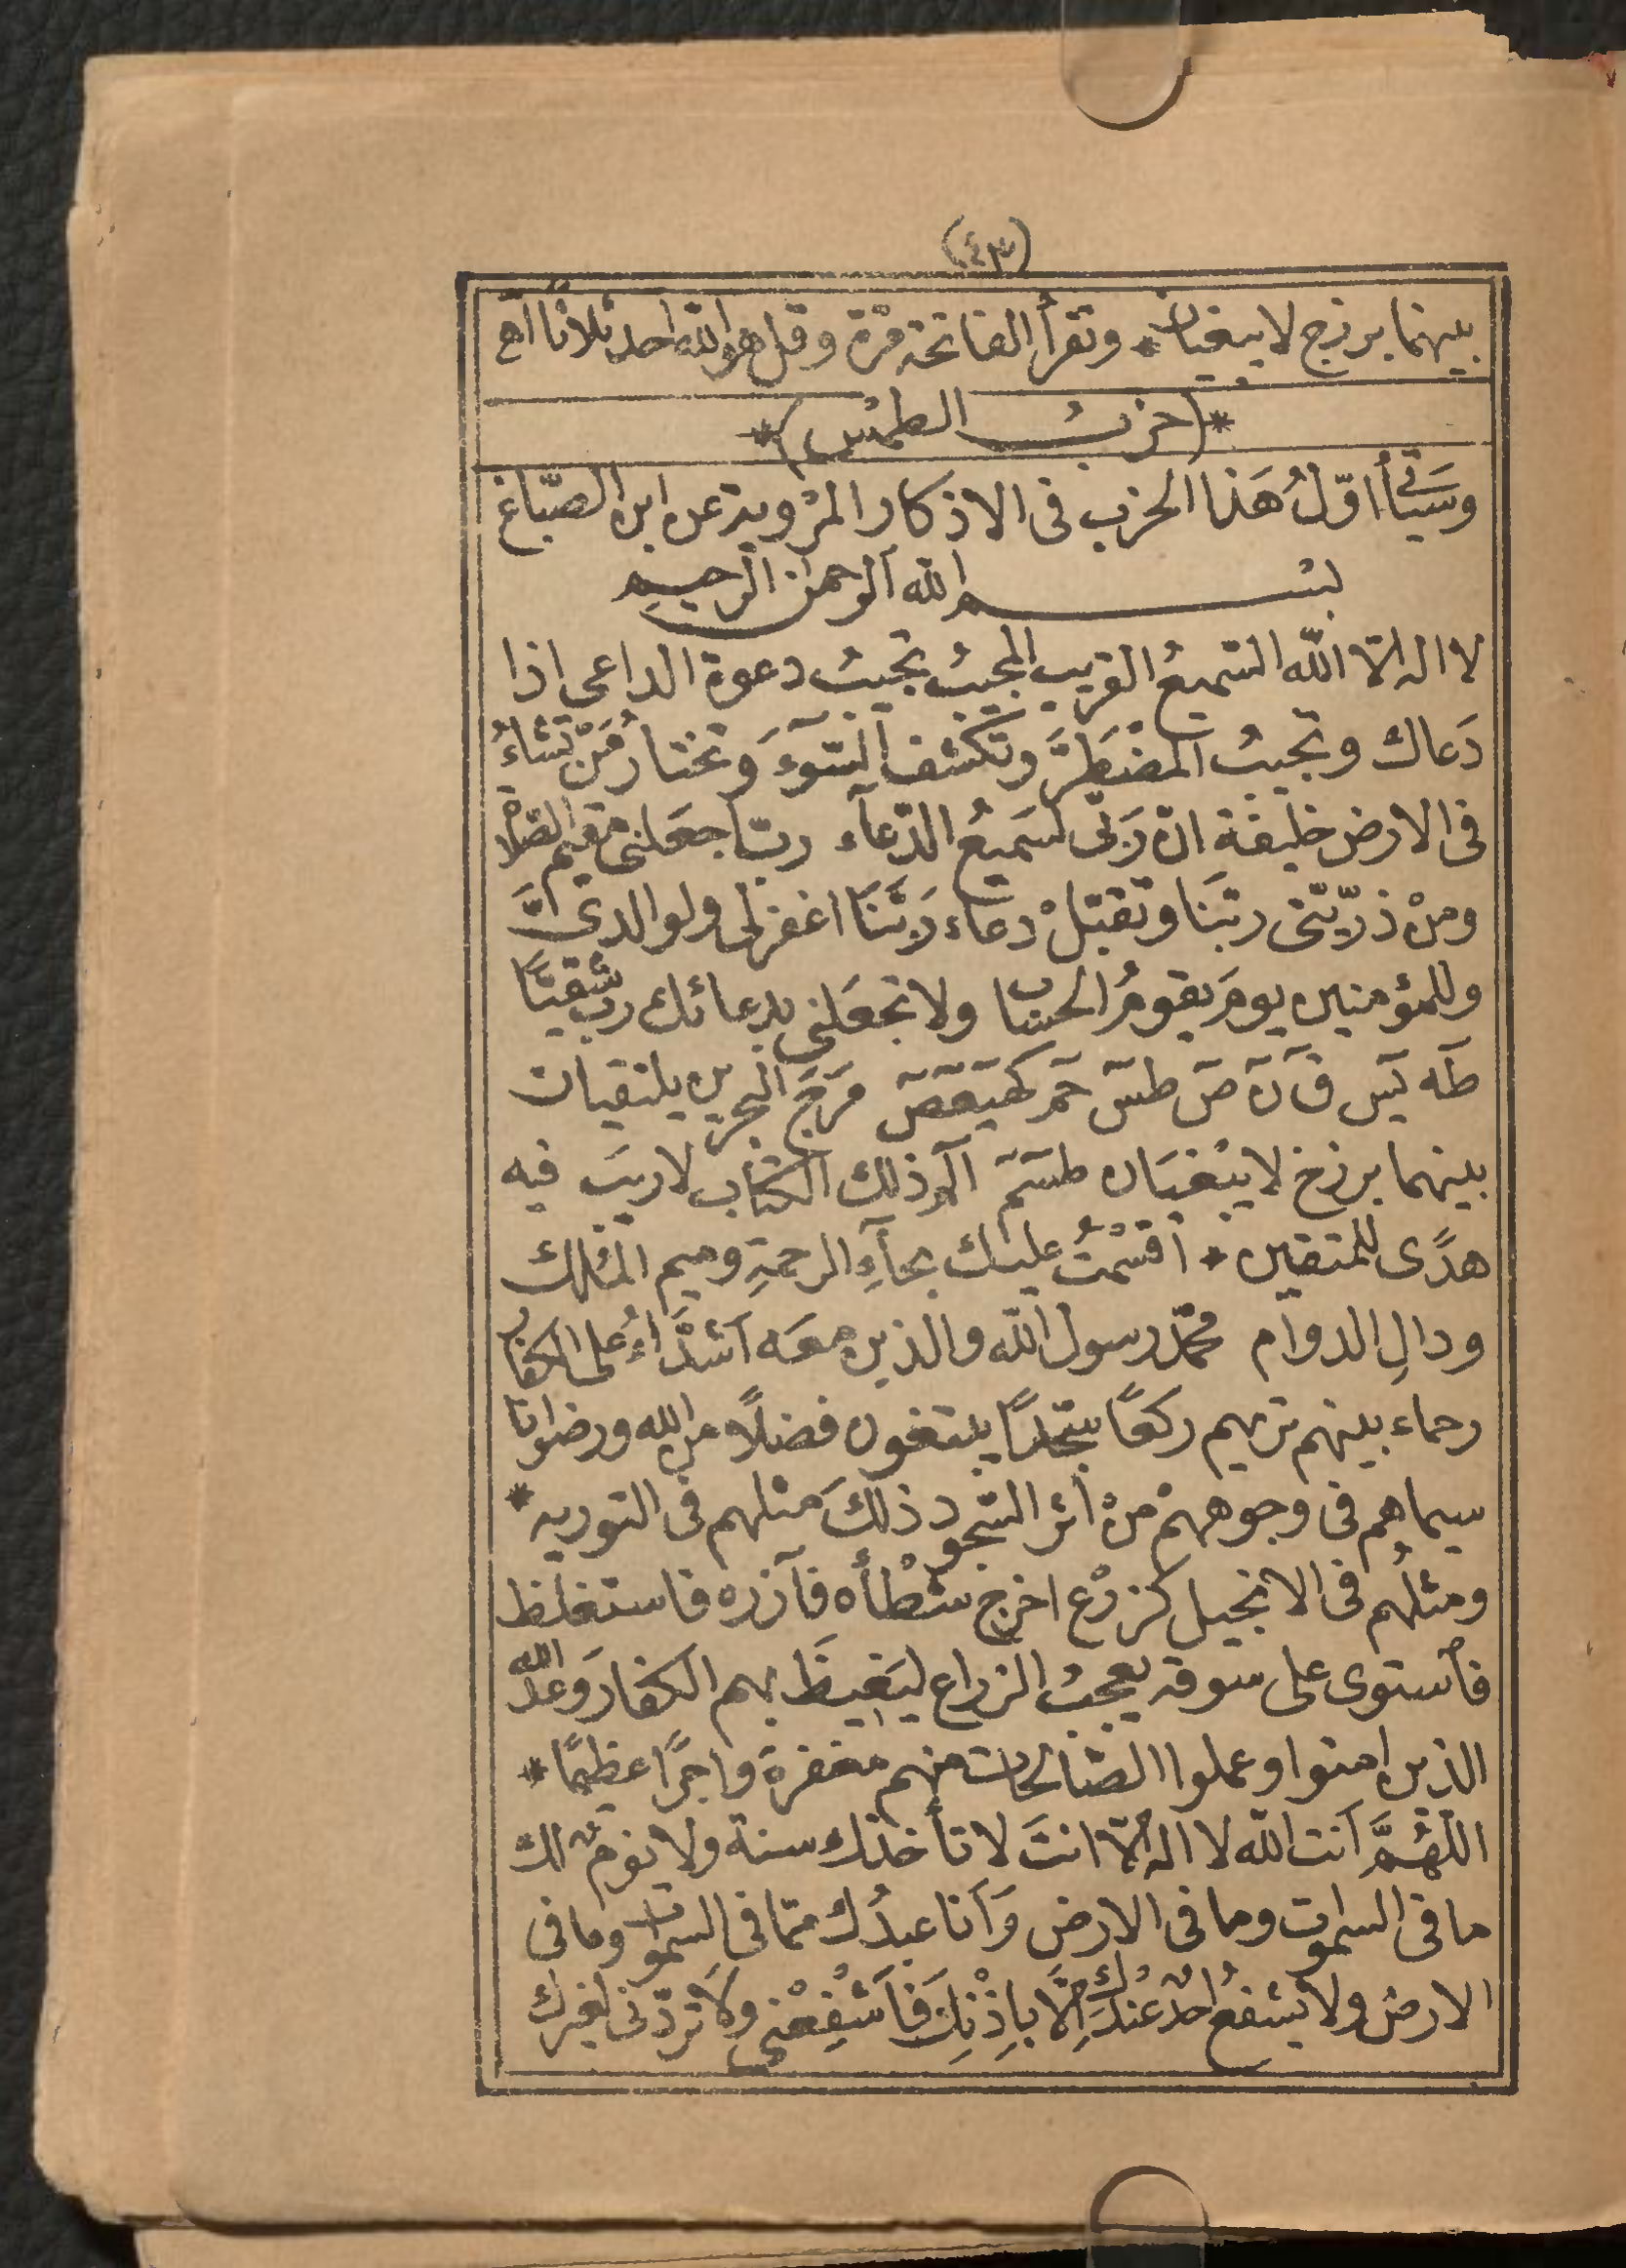 (٤٣)
بينهما برزخ لا يبغيان * وتقرأ الفاتحة مرّة وقل هو الله احد ثلاثًا اهـ
*(حزبُ الطمْس)*
وسَيَأتى اوّلُ هَذا الحزب فى الاذكار المرْوية عن ابن الصبّاغ
بسْم الله الرحمن الرحيم
لا اله الّا الله السّميعُ القريب المجيبُ تجيبُ دعوة الداعى اذا
دَعاك وتجيبُ المضْطَرَّ وتكشف السّوٓءَ وتختارُ مَنْ تشاءُ
فى الارض خليفة انّ رَبّى لسَميعُ الدّعآء ربّ اجعَلنى مقيم الصلاة
ومنْ ذرّيّتى ربّنَا وتقبّلْ دعَاء رَبّنَا اغفرلى ولوالدىَّ
وللمؤمنين يومَ يقومُ الحسَاب ولا تجعَلنى بدعائك ربّ شقيًّا
طٓه يٓس قٓ نٓ صٓ طسٓ حٓمٓ كٓهٓيٓعٓصٓ مَرَجَ البحرين يلتقيان
بينهما برزخ لا يبْغيَان طسٓمٓ الٓمٓ ذلك الكتَاب لا ريبَ فيه
هدًى للمتقين * اقسَمْتُ عليك بحآءِ الرحمةِ وميم المُلك
ودالِ الدوام محمّد رسول الله والذين معَه اَشدَّاءُ على الكفار
رحماء بينهم تريهم ركعًا سجّدًا يبتغون فضلًا من الله ورضوانا
سيماهم فى وجوههمْ منْ أثر السّجود ذلكَ مثلهم فى التوريه *
ومثلُهم فى الانجيل كزرْع اخرج شطْأه فآزره فاستغلظ
فاستوى على سوقه يعجبُ الزراع ليَغيظَ بهم الكفارَ وَعدَ الله
الذين امنوا وعملوا الصّالحات منهم مغفرة واجرًا عظيمًا *
اللّهُمَّ اَنت الله لا اله الّا انتَ لا تأخذك سنة ولا نومٌ لك
ما فى السموات وما فى الارض وَاَنا عبدُك ممّا فى السموات وما فى
الارض ولا يشفعُ احدٌ عندَك اِلَّا باِذْنِكَ فَاَشْفِعْنى وَلَا تردّنى لغيرك